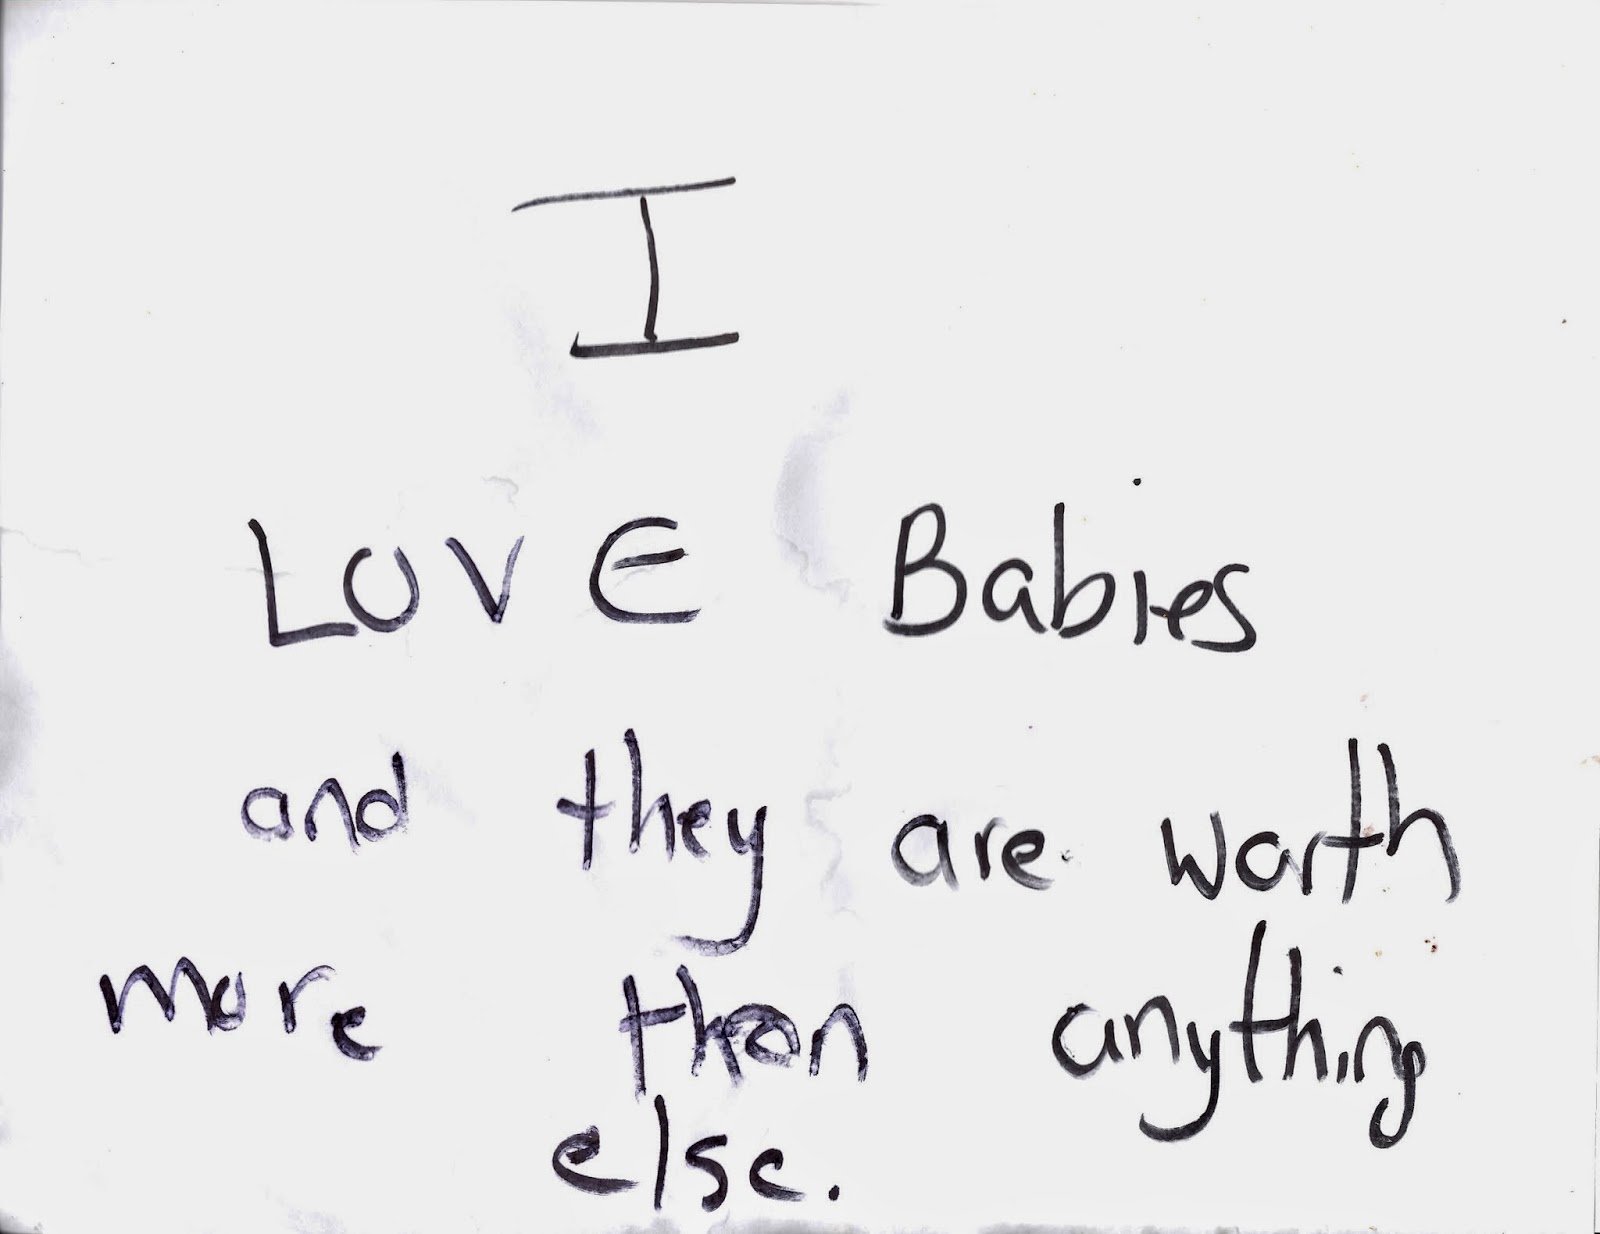 I
LOVE Babies
and they are worth
more than anything
else.